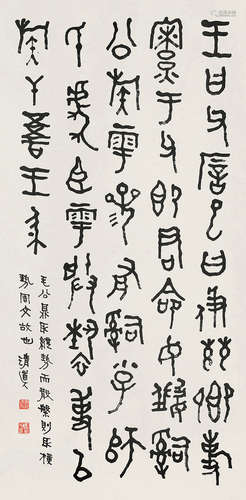 王曰父厝已曰彶茲卿事
寮于父即君命女𤔲
公族雩參有𤔲小子師
氏虎臣雩朕褻事以
族干吾王身
毛公鼎取縱勢而散槃則取橫
勢文故也 清道人